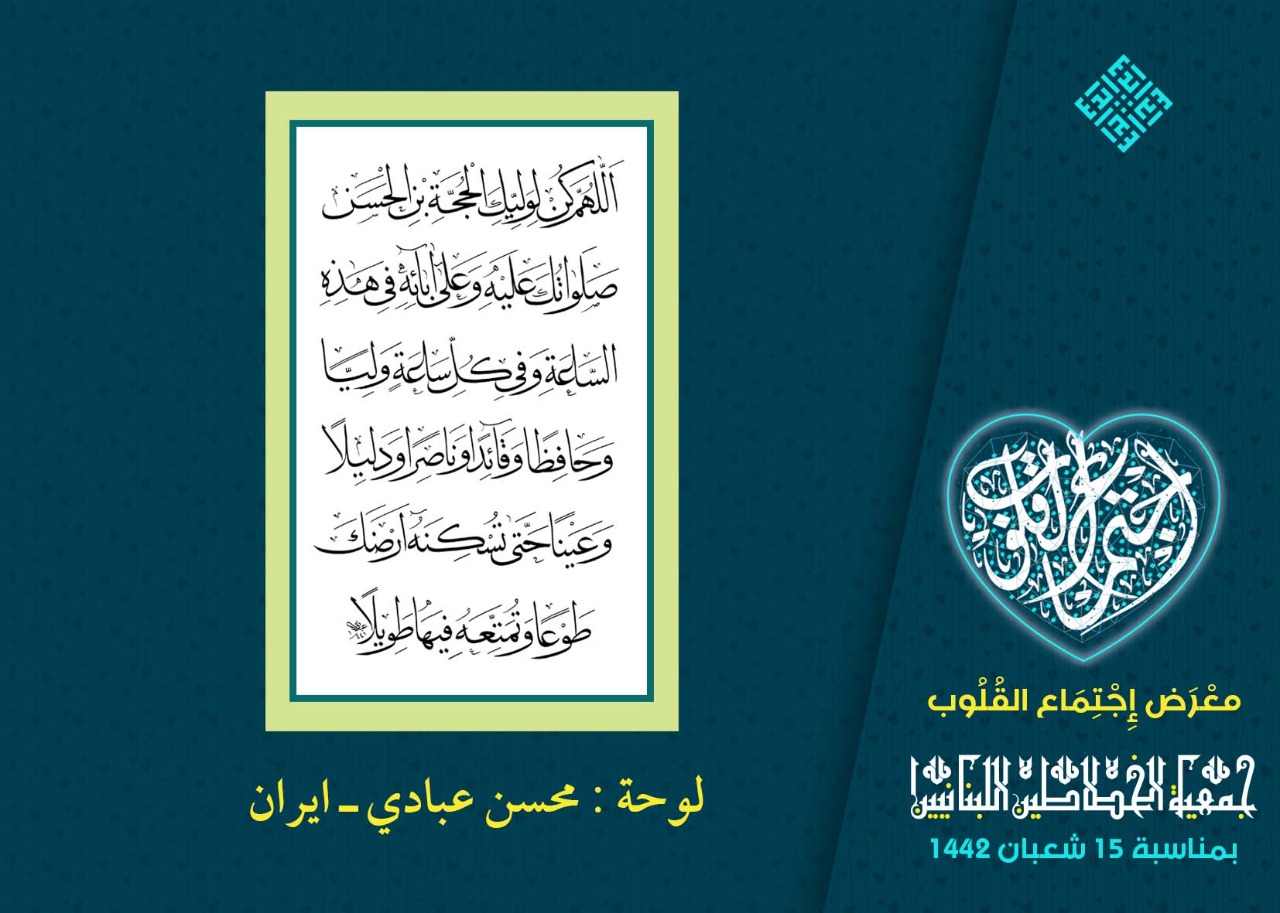 اَللّٰهُمَّ كُنْ لِوَلِيِّكَ الْحُجَّةِ بْنِ الْحَسَنِ
صَلَواتُكَ عَلَيْهِ وَعَلىٰ ابٰائِهِ في هٰذِهِ
السّٰاعَةِ وَفي كُلِّ سٰاعَةٍ وَلِيًّا
وَحٰافِظًا وَقٰآئِدًا وَنٰاصِرًا وَدَليلًا
وَعَيْنًا حَتّىٰ تُسْكِنَهُ اَرْضَكَ
طَوْعًا وَتُمَتِّعَهُ فيهٰا طَويلًا
لوحة : محسن عبادي - ايران
إجتماع القلوب
معْرَض إِجْتِمَاع القُلُوب
جمعية الخطاطين اللبنانيين
بمناسبة 15 شعبان 1442